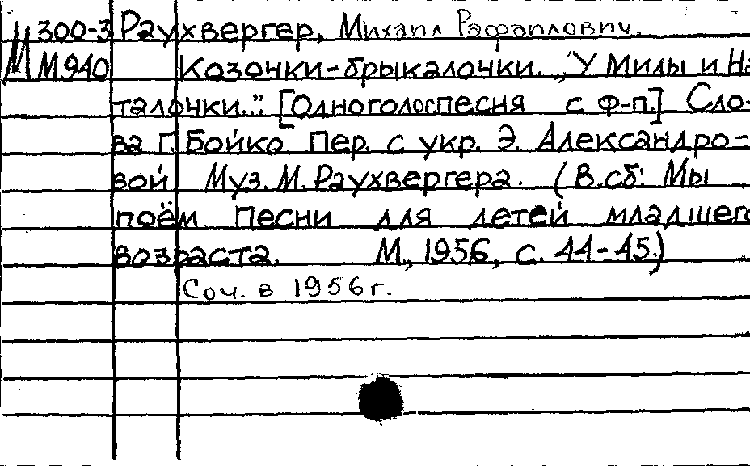 М 300-3 Раухвергер, Михаил Рафаилович.
М940 Козочки-брыкалочки. „У Милы и На
талочки..". [Одноголоспесня с ф-п.] Сло-
ва Г. Бойко Пер. с укр. Э. Александро-
вой Муз. М. Раухвергера. (В сб: Мы
поём Песни для детей младшего
возраста. М., 1956, с. 44-45.)
Соч. в 1956г.